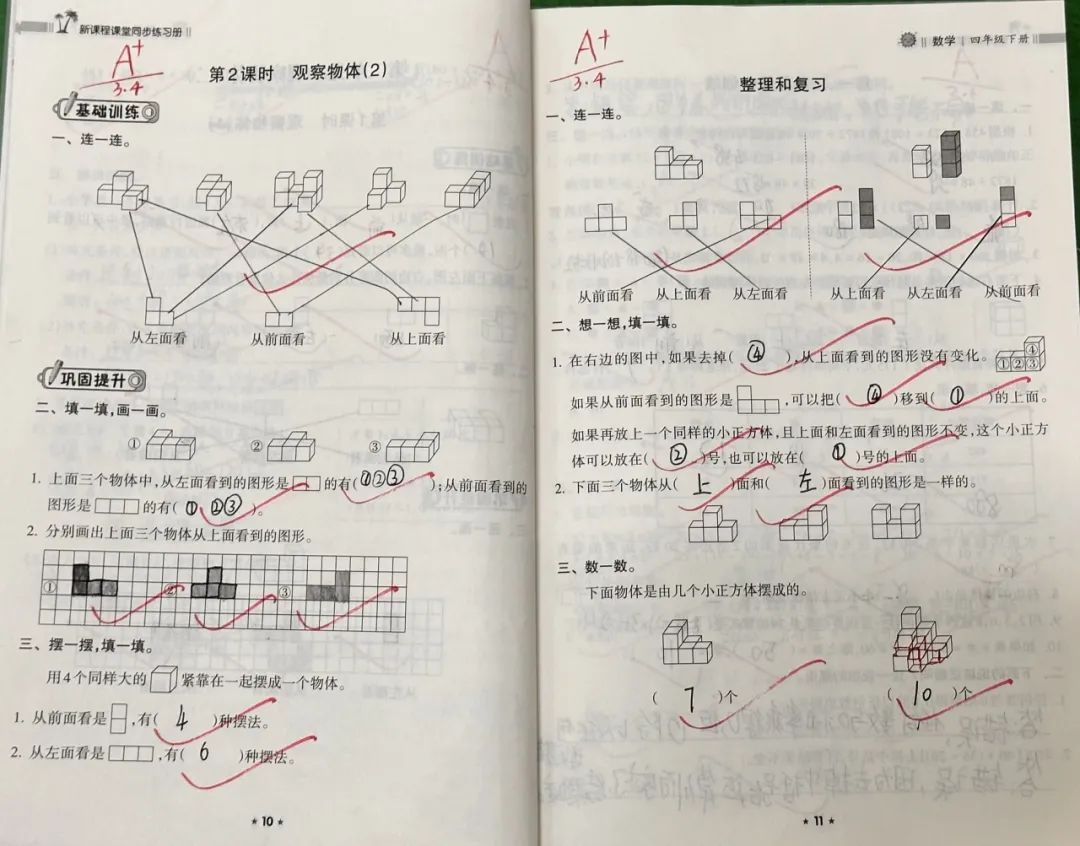 新课程课堂同步练习册
A+
3.4
第2课时 观察物体(2)
基础训练
一、连一连。
从左面看 从前面看 从上面看
巩固提升
二、填一填,画一画。
① ② ③
1. 上面三个物体中,从左面看到的图形是 的有(①②③);从前面看到的
图形是 的有(①②③)。
2. 分别画出上面三个物体从上面看到的图形。
① ② ③
三、摆一摆,填一填。
用4个同样大的 紧靠在一起摆成一个物体。
1. 从前面看是 ,有( 4 )种摆法。
2. 从左面看是 ,有( 6 )种摆法。
★ 10 ★
数学 四年级下册
A+
3.4
整理和复习
一、连一连。
从前面看 从上面看 从左面看 从上面看 从左面看 从前面看
二、想一想,填一填。
1. 在右边的图中,如果去掉( ④ ),从上面看到的图形没有变化。
④
①②③
如果从前面看到的图形是 ,可以把( ④ )移到( ① )的上面。
如果再放上一个同样的小正方体,且上面和左面看到的图形不变,这个小正方
体可以放在( ② )号,也可以放在( ① )号的上面。
2. 下面三个物体从( 上 )面和( 左 )面看到的图形是一样的。
三、数一数。
下面物体是由几个小正方体摆成的。
( 7 )个 ( 10 )个
★ 11 ★